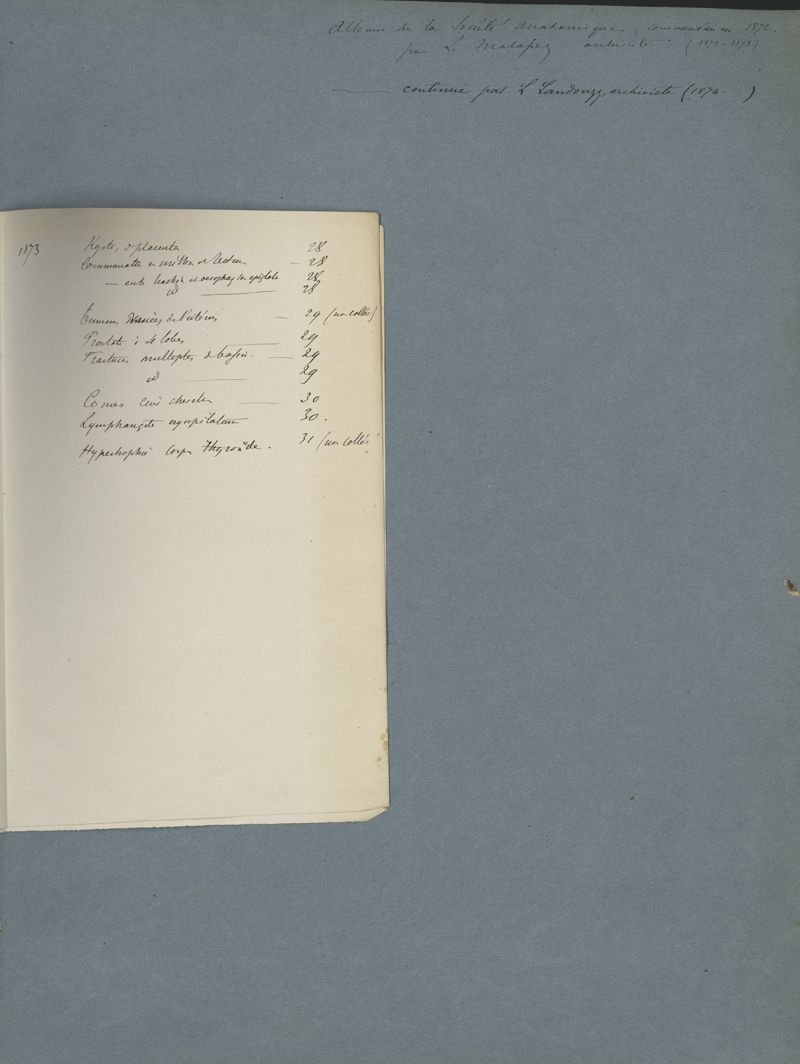 Album de la Société anatomique, commencé en 1872
par L. Malassez archiviste (1872-1873)
continué par L. Landouzy, archiviste (1874- )
1873 Kyste, d placenta 28
Communication 28
— entre trachée et oesophage 28
id — 28
Tumeurs de l'utérus — 29 (non collés)
Prostate à lobes — 29
Fractures multiples de bassin. — 29
id — 29
— 30
Lymphangite 30.
Hypertrophie corps Thyroïde. 31 (non collés)